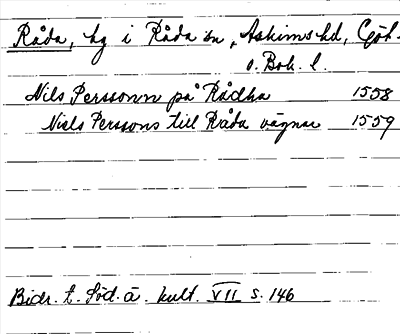 Råda, hg i Råda sn, Askims hd, Göt.
o. Boh. l.
Nils Personn på Rådha 1558
Niels Perssons till Råda vägnar 1559
Bidr. t. Söd. ä. kult. VII s. 146